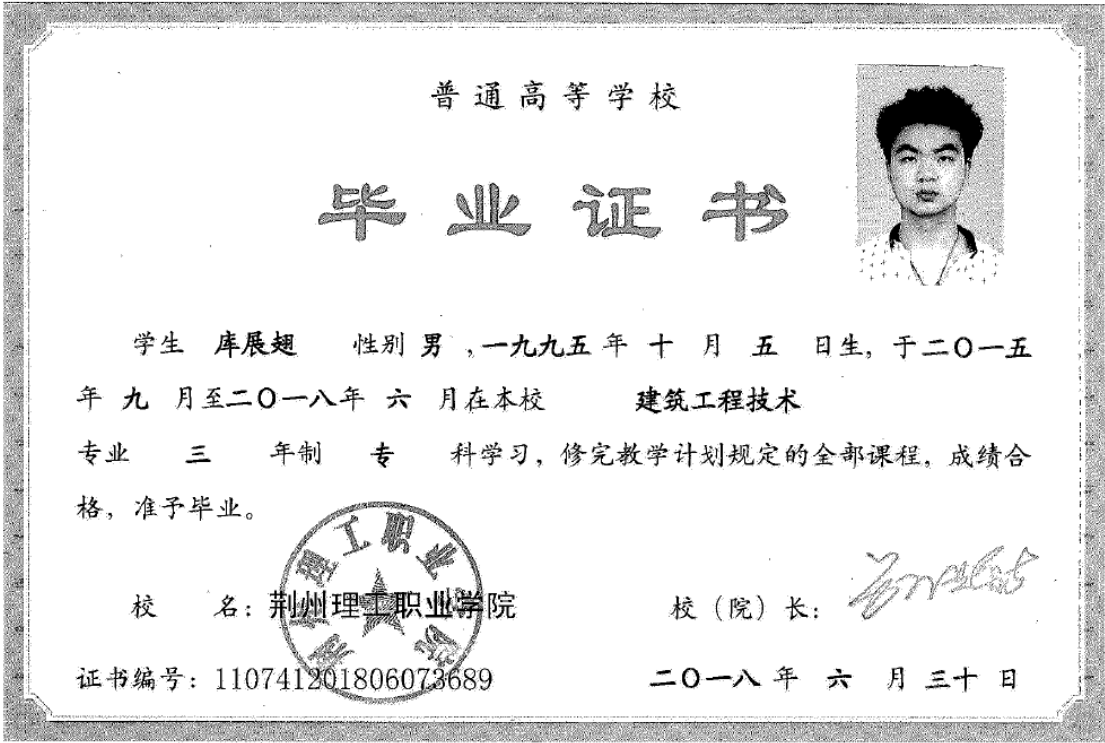 普通高等学校
毕业证书
学生 库展翅 性别 男 ,一九九五 年 十 月 五 日生, 于二〇一五
年 九 月至二〇一八年 六 月在本校 建筑工程技术
专业 三 年制 专 科学习, 修完教学计划规定的全部课程, 成绩合
格, 准予毕业。
荆州理工职业学院
校 名: 荆州理工职业学院 校 (院) 长:
证书编号: 110741201806073689 二〇一八 年 六 月 三十 日